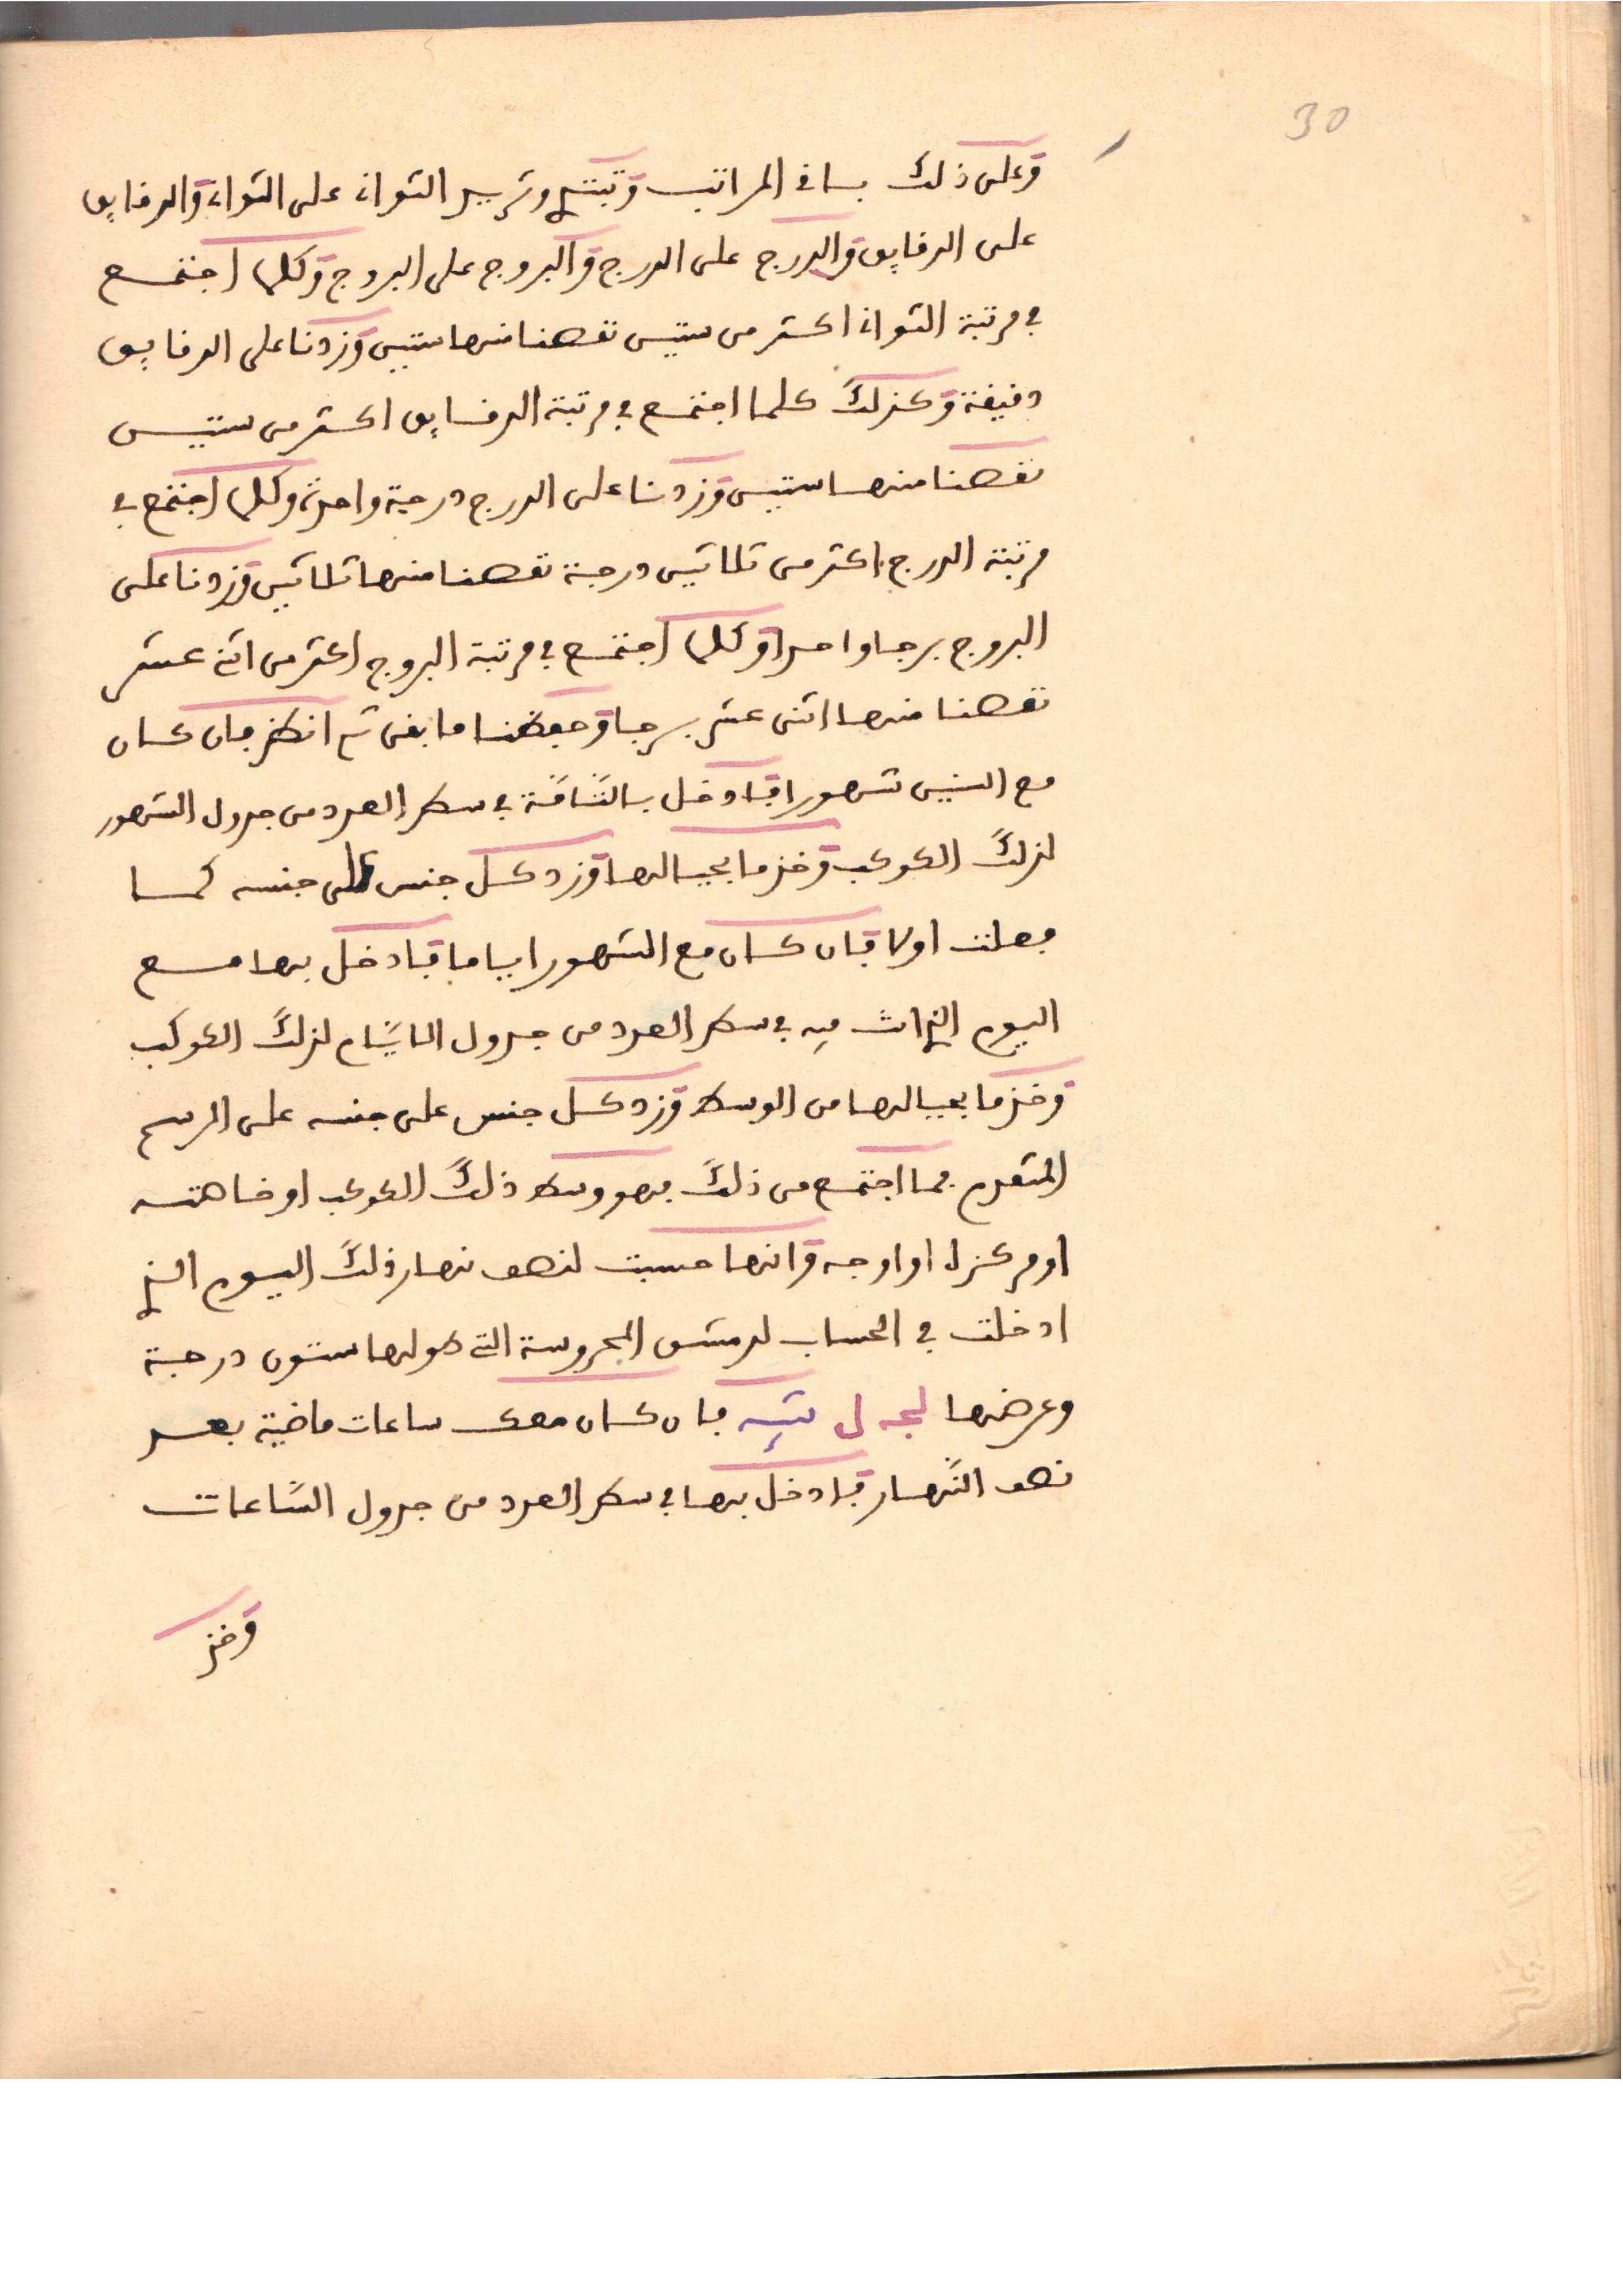 30
وعلى ذلك باقي المراتب وتبتدي وتزيد الثواني على الثواني والدقايق
على الدقايق والدرج على الدرج والبروج على البروج وكلما اجتمع
في مرتبة الثواني اكثر من ستين نقصنا منها ستين وزدنا على الدقايق
دقيقة وكذلك كلما اجتمع في مرتبة الدقايق اكثر من ستين
نقصنا منها ستين وزدنا على الدرج درجة واحدة وكلما اجتمع في
مرتبة الدرج اكثر من ثلاثين درجة نقصنا منها ثلاثين وزدنا على
البروج برجا واحدا وكلما اجتمع في مرتبة البروج اكثر من اثني عشر
نقصنا منها اثنى عشر برجا وحفظنا ما بقى ثم انظر فان كان
مع السنين شهورا فادخل بالتامة في سطر العدد من جدول الشهور
لذلك الكوكب وخذ ما بحيالها وزد كل جنس على جنسه كما
فعلت اولا فان كان مع الشهور اياما فادخل بها مع
اليوم الذي انت فيه في سطر العدد من جدول الايام لذلك الكوكب
وخذ ما بحيالها من الوسط وزد كل جنس على جنسه على الرسم
المتقدم فما اجتمع من ذلك فهو وسط ذلك الكوكب او خاصته
او مركزه او اوجه وانها حسبت لنصف نهار ذلك اليوم الذي
ادخلت في الحساب لدمشق المحروسة التي طولها ستون درجة
وعرضها لجه ل فان كان معك ساعات ماضية بعد
نصف النهار فادخل بها في سطر العدد من جدول الساعات
وخذ